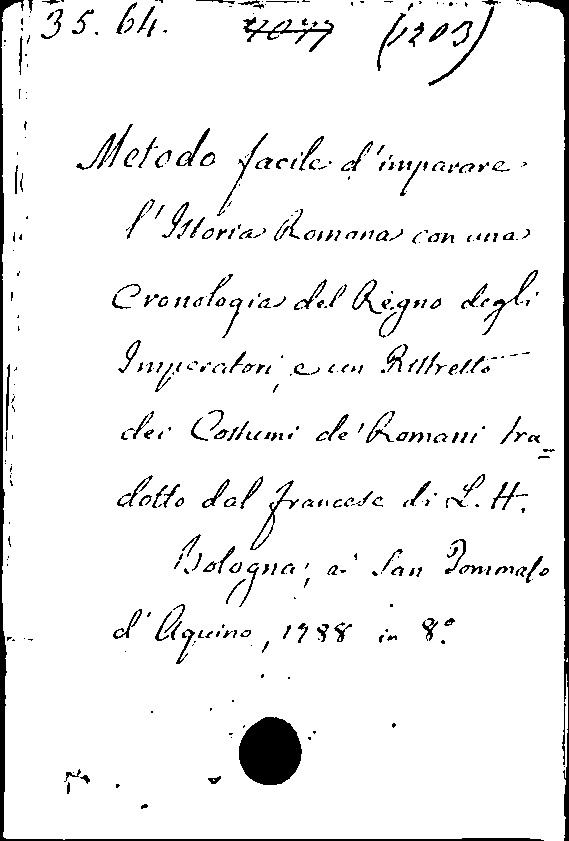 35. 64. 4077 (1203)
Metodo facile d'imparare
l'Istoria Romana con una
Cronologia del Regno degli
Imperatori, e un Ristretto
dei Costumi de' Romani tra=
dotto dal francese di L. H.
Bologna, a' San Tommaso
d'Aquino, 1788 in 8.º